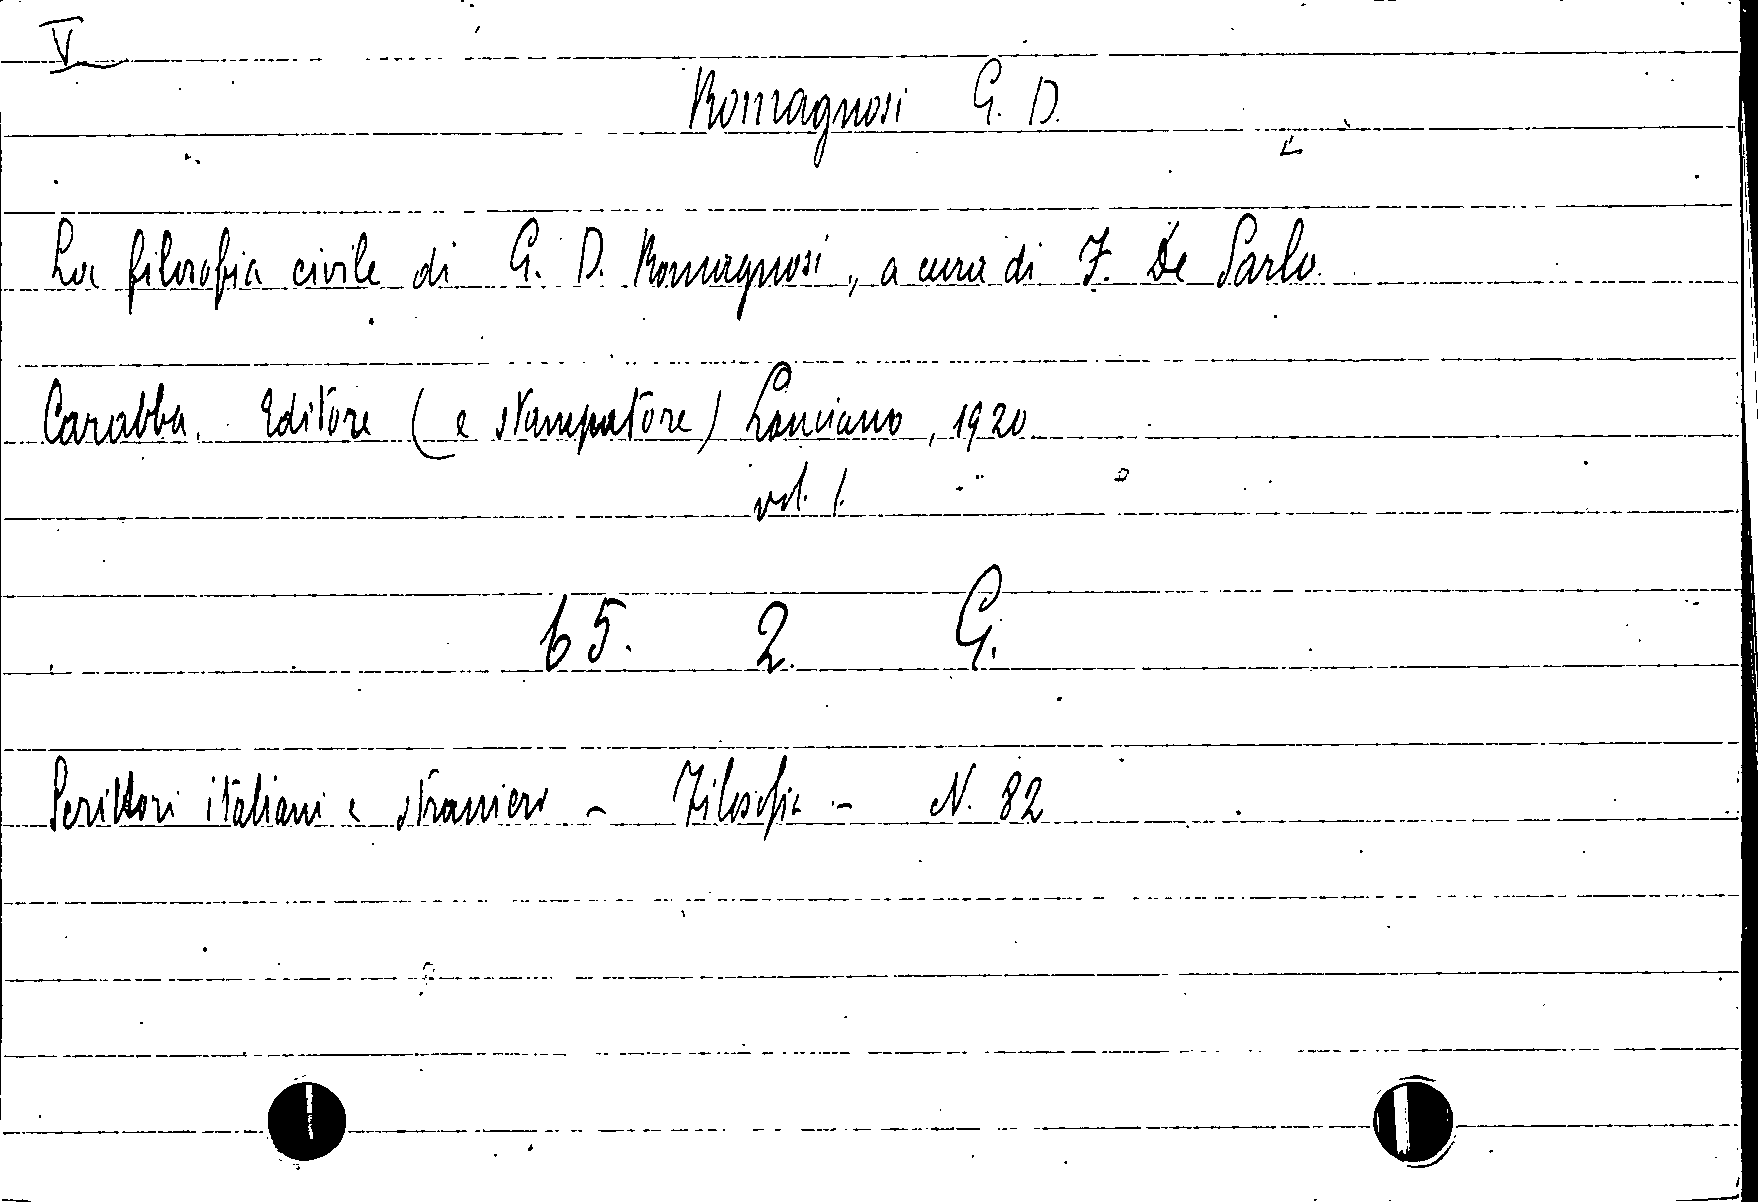 V
Romagnosi G. D.
La filosofia civile di G. D. Romagnosi, a cura di F. De Sarlo.
Carabba. Editore (e stampatore) Lanciano, 1920
vol. 1.
65. 2. G.
Scrittori italiani e stranieri - Filosofia - N. 82